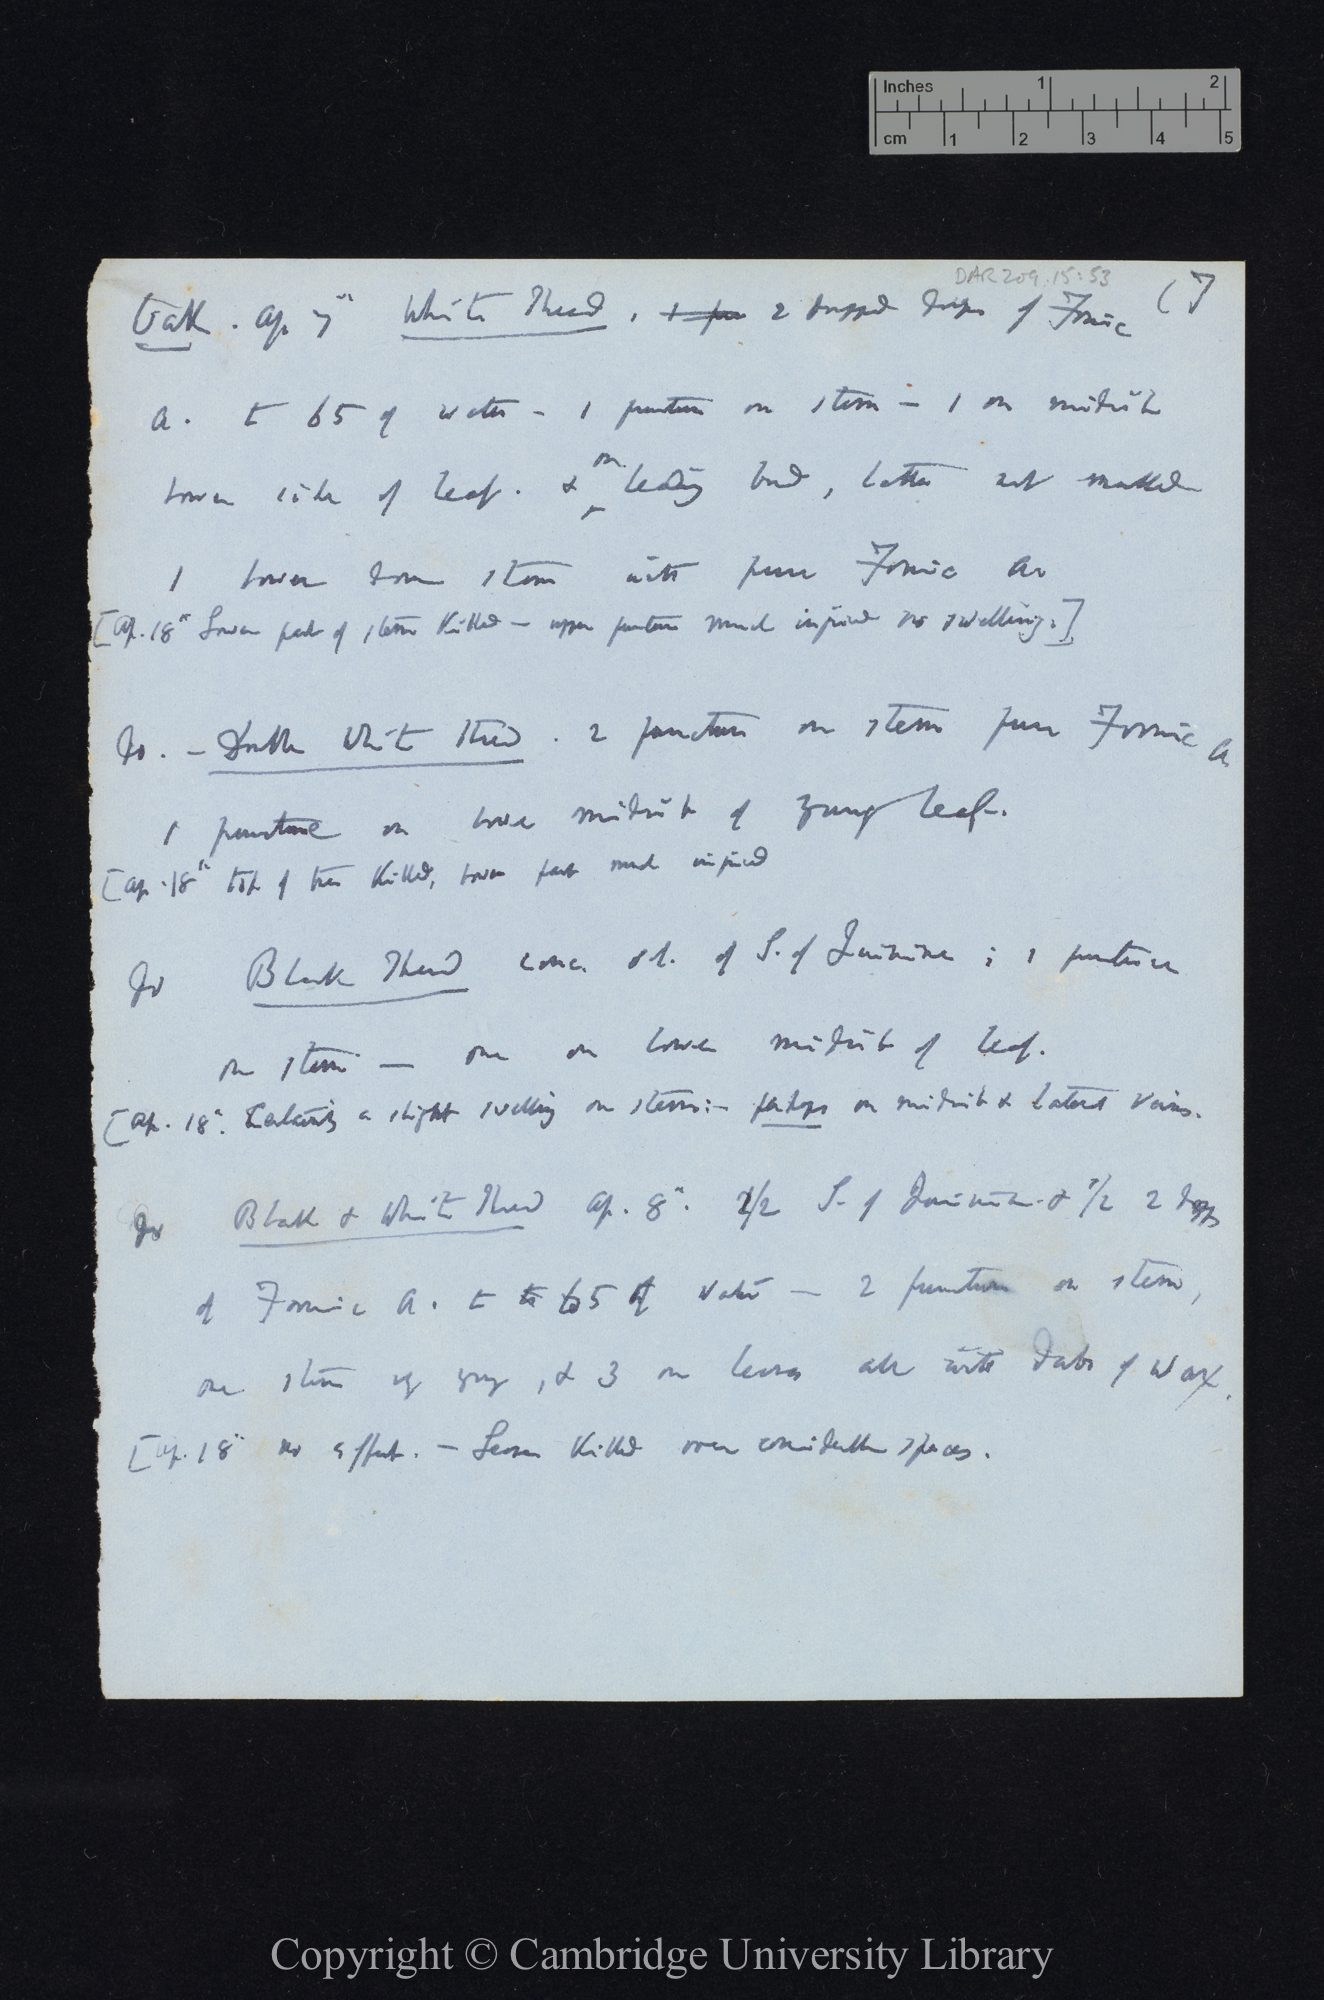 Inches 1 2
cm 1 2 3 4 5
DAR 209.15:53
Oak. Ap 7th White Thread, 1 pure 2 dropped drops of Formic (7
A. to 65 of water – 1 puncture on stem – 1 on midrib
lower side of leaf. & on leading bud, latter not marked
1 lower down stem with pure Formic Ac
[Ap. 18th Lower part of stem killed – upper puncture much injured no swelling.]
Do. – Double White Thread. 2 punctures on stem pure Formic A.
1 puncture on lower midrib of young leaf.
[Ap. 18th top of tree killed, lower part much injured
Do Black Thread conc. sol. of S. of Quinine; 1 puncture
on stem — one on lower midrib of leaf.
[Ap. 18th. Certainly a slight swelling on stem:– perhaps on midrib & lateral veins.
Do Black & White Thread Ap. 8th. 1/2 S. of Quinine & 1/2 2 drops
of Formic A. to 65 of water — 2 punctures on stem,
one stem young, & 3 on leaves all with dabs of wax.
[Ap. 18th no effect. — Leaves killed over considerable spaces.
Copyright © Cambridge University Library